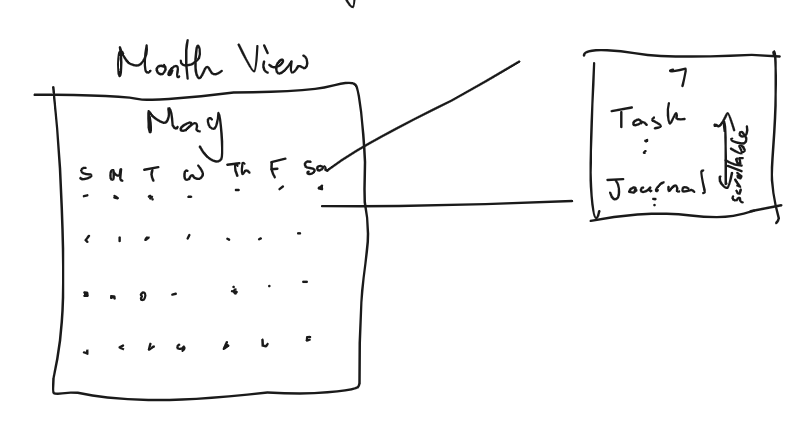 Month View
May
S M T W Th F Sa
7
Task
:
Journal
:
scrollable